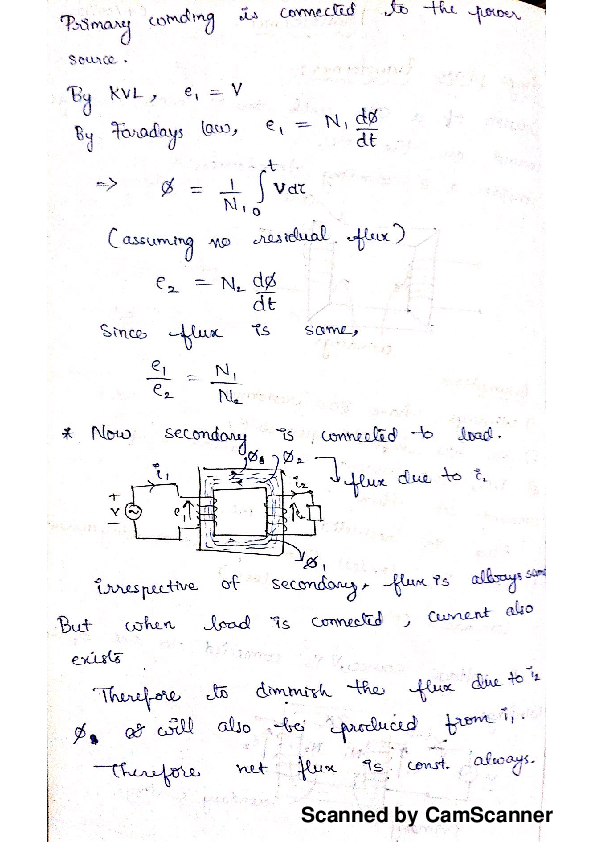 Primary winding is connected to the power
source.
By KVL, e₁ = V
By Faradays law, e₁ = N₁ dø/dt
=> ø = 1/N₁ ∫₀ᵗ Vdτ
(assuming no residual flux)
e₂ = N₂ dø/dt
Since flux is same,
e₁/e₂ = N₁/N₂
* Now secondary is connected to load.
ø₂
flux due to i₂
i₁
i₂
+
V
-
e₁
ø₁
irrespective of secondary, flux is always same
But when load is connected, current also
exists
Therefore to diminish the flux due to i₂
ø will also be produced from i₁.
Therefore net flux is const. always.
Scanned by CamScanner